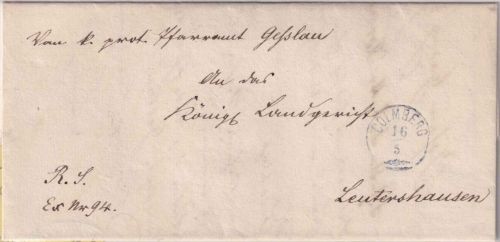 Von k. prot. Pfarramt Geßlau
An das
Königl Landgericht
COLMBERG
16
5
R. S.
Ex Nr 94.
Leutershausen